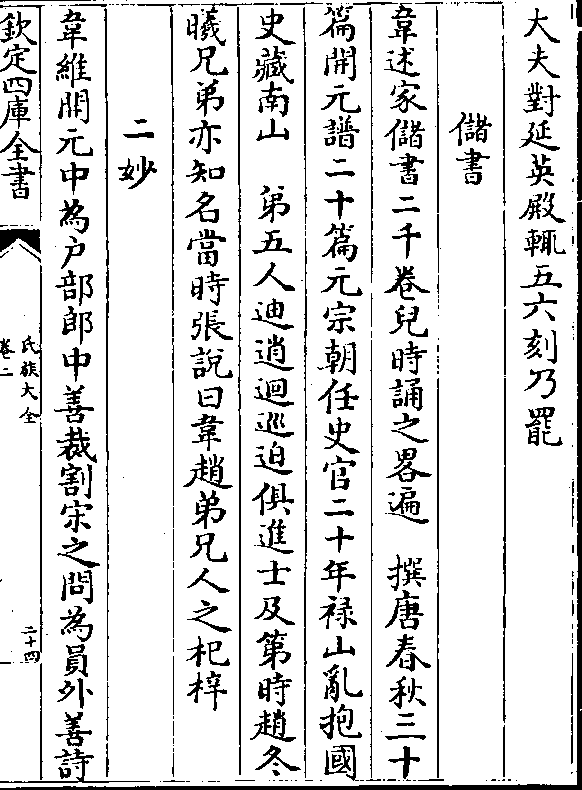 大夫對延英殿輒五六刻乃罷
儲書
韋述家儲書二千卷兒時誦之畧遍　撰唐春秋三十
篇開元譜二十篇元宗朝任史官二十年祿山亂抱國
史藏南山　弟五人迪逍迴巡迫俱進士及第時趙冬
曦兄弟亦知名當時張說曰韋趙弟兄人之杞梓
二妙
韋維開元中為户部郎中善裁割宋之問為員外善詩
欽定四庫全書
氏族大全
卷二
二十四